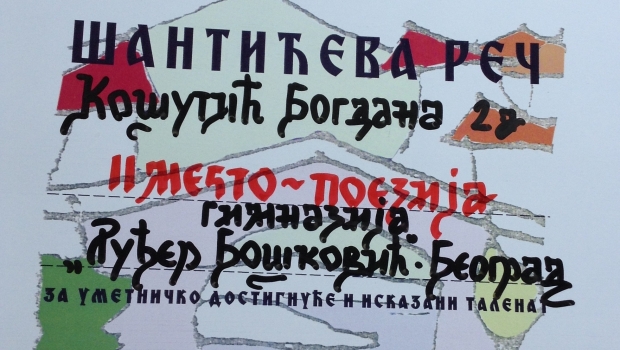 ШАНТИЋЕВА РЕЧ
Кошутић Богдана 2д
II место ~ поезија
гимназија
„Руђер Бошковић" Београд
ЗА УМЕТНИЧКО ДОСТИГНУЋЕ И ИСКАЗАНИ ТАЛЕНАТ